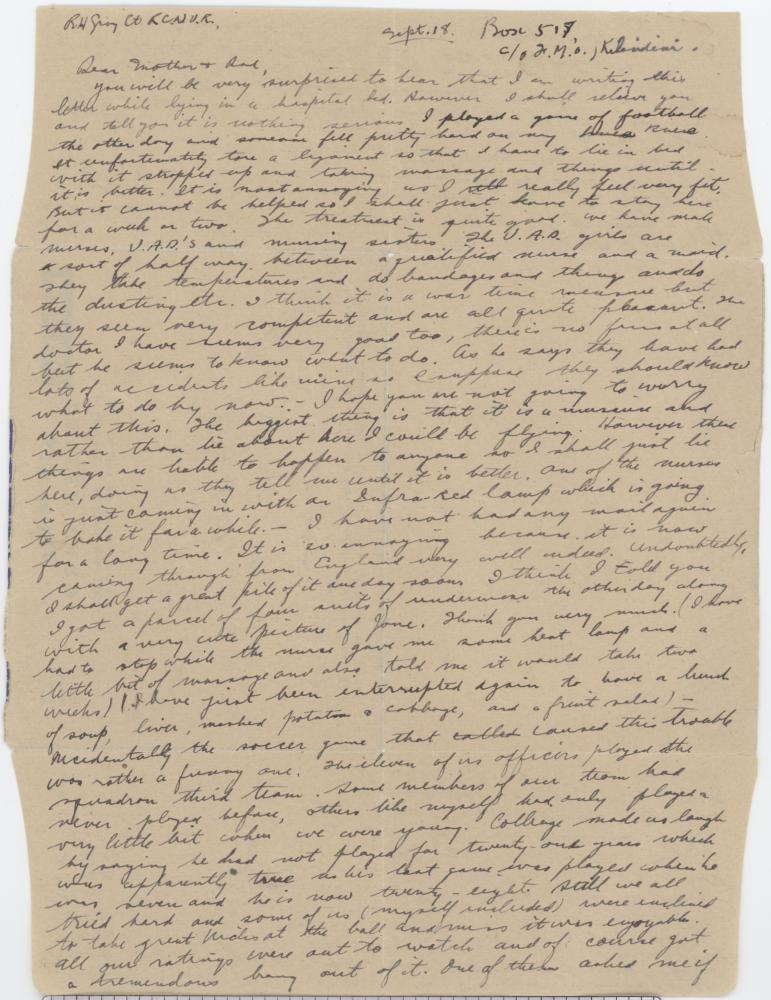 R.H Gray Lt R.C.N.V.R.,
Sept. 18. Box 517
c/o F.M.O., Kilindini.
Dear Mother & Dad,
you will be very surprised to hear that I am writing this
letter while lying in a hospital bed. However I shall relieve you
and tell you it is nothing serious I played a game of football
the other day and someone fell pretty hard on my knee.
It unfortunately tore a ligament so that I have to lie in bed
with it strapped up and taking massage and things until
it is better. It is most annoying as I still really feel very fit.
But it cannot be helped so I shall just have to stay here
for a week or two. The treatment is quite good. We have male
nurses, V.A.D.'s and nursing sisters. The V.A.D. girls are
a sort of half way between a qualified nurse and a maid.
They take temperatures and do bandages and things and do
the dusting etc. I think it is a war time measure but
they seem very competent and are all quite pleasant. The
doctor I have seems very good too, there is no fuss at all
but he seems to know what to do. As he says they have had
lots of accidents like mine so I suppose they should know
what to do by now. - I hope you are not going to worry
about this. The biggest thing is that it is a nuisance and
rather than lie about here I could be flying. However these
things are liable to happen to anyone so I shall just lie
here, doing as they tell me until it is better. One of the nurses
is just coming in with an Infra-red lamp which is going
to bake it for a while. - I have not had any mail again
for a long time. It is so annoying because it is now
coming through from England very well indeed. Undoubtedly,
I shall get a great pile of it one day soon. I think I told you
I got a parcel of four suits of underwear the other day along
with a very cute picture of June. Thank you very much. (I have
had to stop while the nurse gave me some heat lamp and a
little bit of massage and also told me it would take two
weeks) (I have just been interrupted again to have a lunch
of soup, liver, mashed potatoes & cabbage, and a fruit salad) -
Incidentally the soccer game that called caused this trouble
was rather a funny one. The eleven of us officers played the
squadron third team. Some members of our team had
never played before, others like myself had only played a
very little bit when we were young. Collrage made us laugh
by saying he had not played for twenty-one years which
was apparently true as his last game was played when he
was seven and he is now twenty-eight. Still we all
tried hard and some of us (myself included) were inclined
to take great kicks at the ball and miss it was enjoyable.
all our ratings were out to watch and of course got
a tremendous bang out of it. One of them asked me if